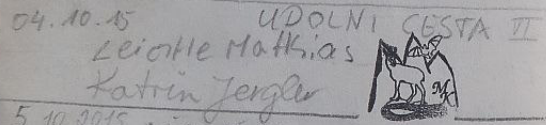 04.10.15 UDOLNI CESTA VI
Leichtle Matthias
Katrin Jergler
5.10.2015